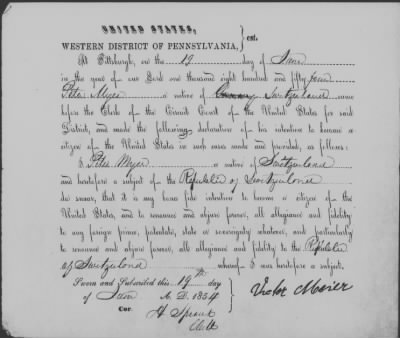 UNITED STATES,
WESTERN DISTRICT OF PENNSYLVANIA, } sct.
At Pittsburgh, on the 19 day of
in the year of our Lord one thousand eight hundred and fifty four
Peter Myer a native of Switzerland came
before the Clerk of the Circuit Court of the United States for said
District, and made the following declaration of his intention to become a
citizen of the United States in such cases made and provided, as follows:
I Peter Myer a native of Switzerland
and heretofore a subject of the Republic of Switzerland
do swear, that it is my bona fide intention to become a citizen of the
United States, and to renounce and abjure forever, all allegiance and fidelity
to any foreign prince, potentate, state or sovereignty whatever, and particularly
to renounce and abjure forever, all allegiance and fidelity to the Republic
of Switzerland whereof I was heretofore a subject.
Sworn and Subscribed this 19th day
of A. D. 1854
Cor. H Sproul
Victor Meier